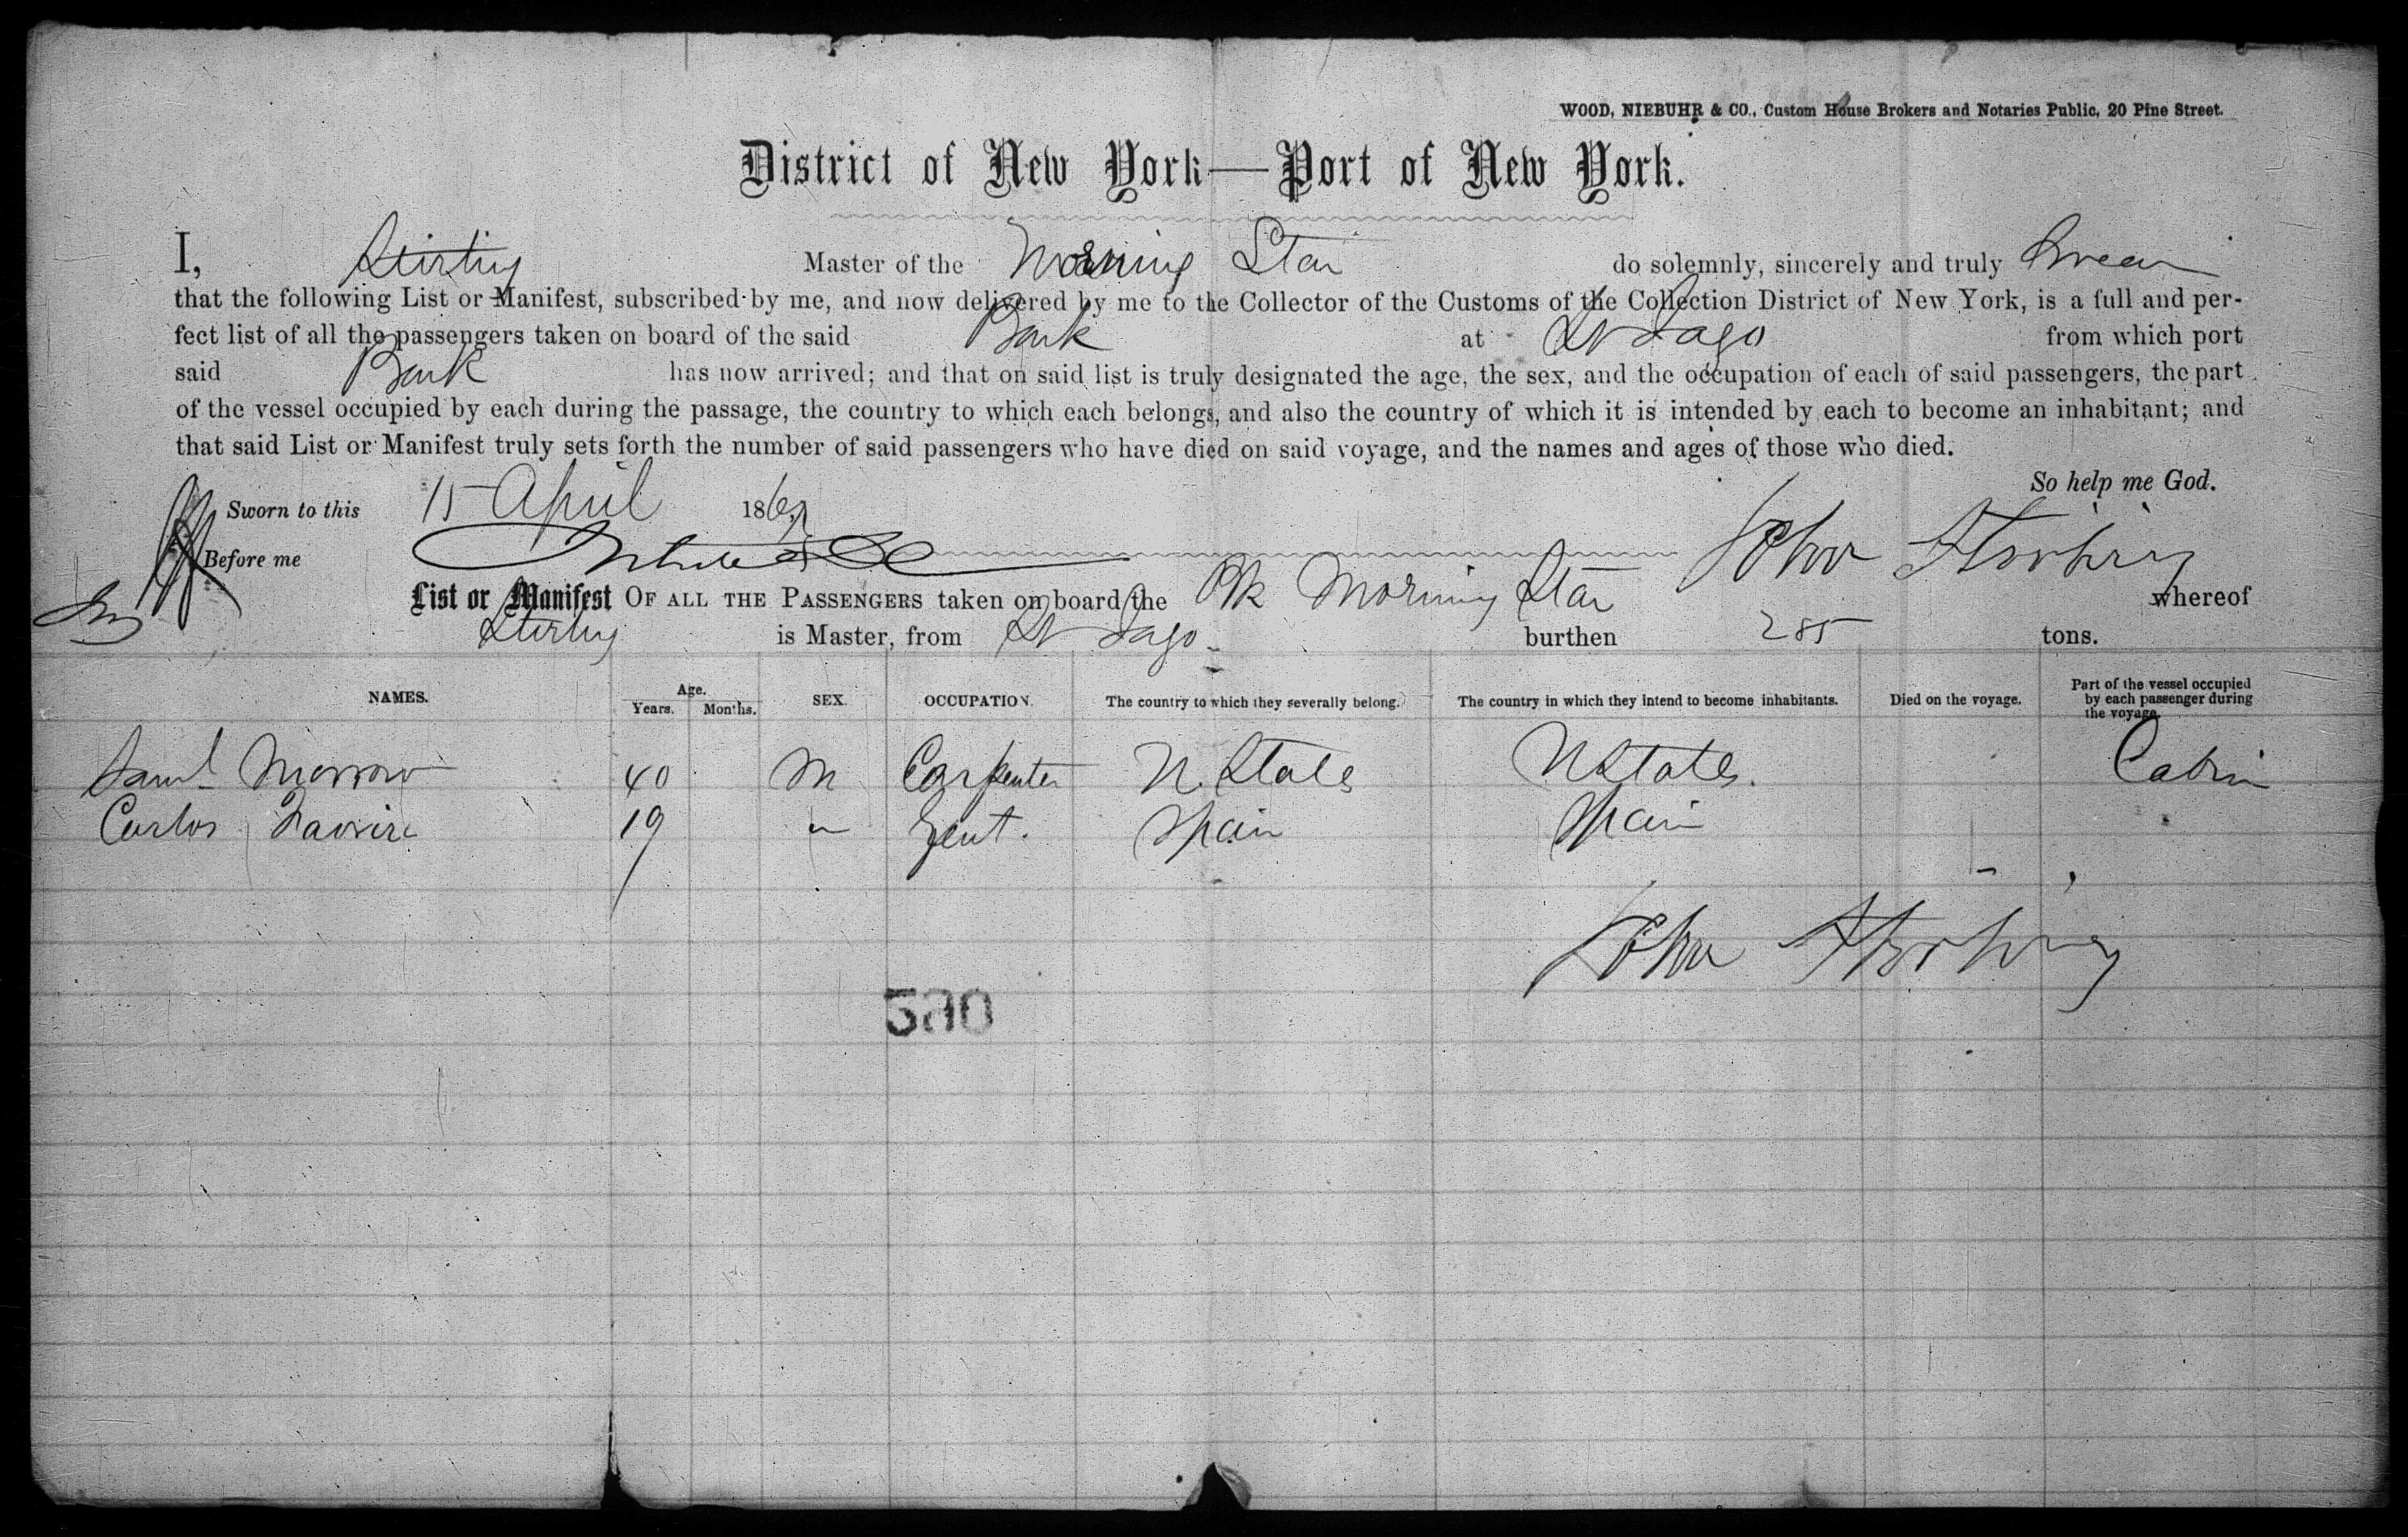 WOOD, NIEBUHR & CO., Custom House Brokers and Notaries Public, 20 Pine Street.
District of New York—Port of New York.
I, Stirling Master of the Morning Star do solemnly, sincerely and truly Swear
that the following List or Manifest, subscribed by me, and now delivered by me to the Collector of the Customs of the Collection District of New York, is a full and per-
fect list of all the passengers taken on board of the said Bark at St Jago from which port
said Bark has now arrived; and that on said list is truly designated the age, the sex, and the occupation of each of said passengers, the part
of the vessel occupied by each during the passage, the country to which each belongs, and also the country of which it is intended by each to become an inhabitant; and
that said List or Manifest truly sets forth the number of said passengers who have died on said voyage, and the names and ages of those who died.
So help me God.
Sworn to this 15 April 186
Before me
John Stirling
List or Manifest OF ALL THE PASSENGERS taken on board the Bk Morning Star whereof
Stirling is Master, from St Jago. burthen 285 tons.
NAMES. Age. Years. Months. SEX. OCCUPATION. The country to which they severally belong. The country in which they intend to become inhabitants. Died on the voyage. Part of the vessel occupied by each passenger during the voyage.
Saml Morrow 40 M Carpenter U. States U States. Cabin
Carlos 19 " Gent. Spain Spain "
John Stirling
580